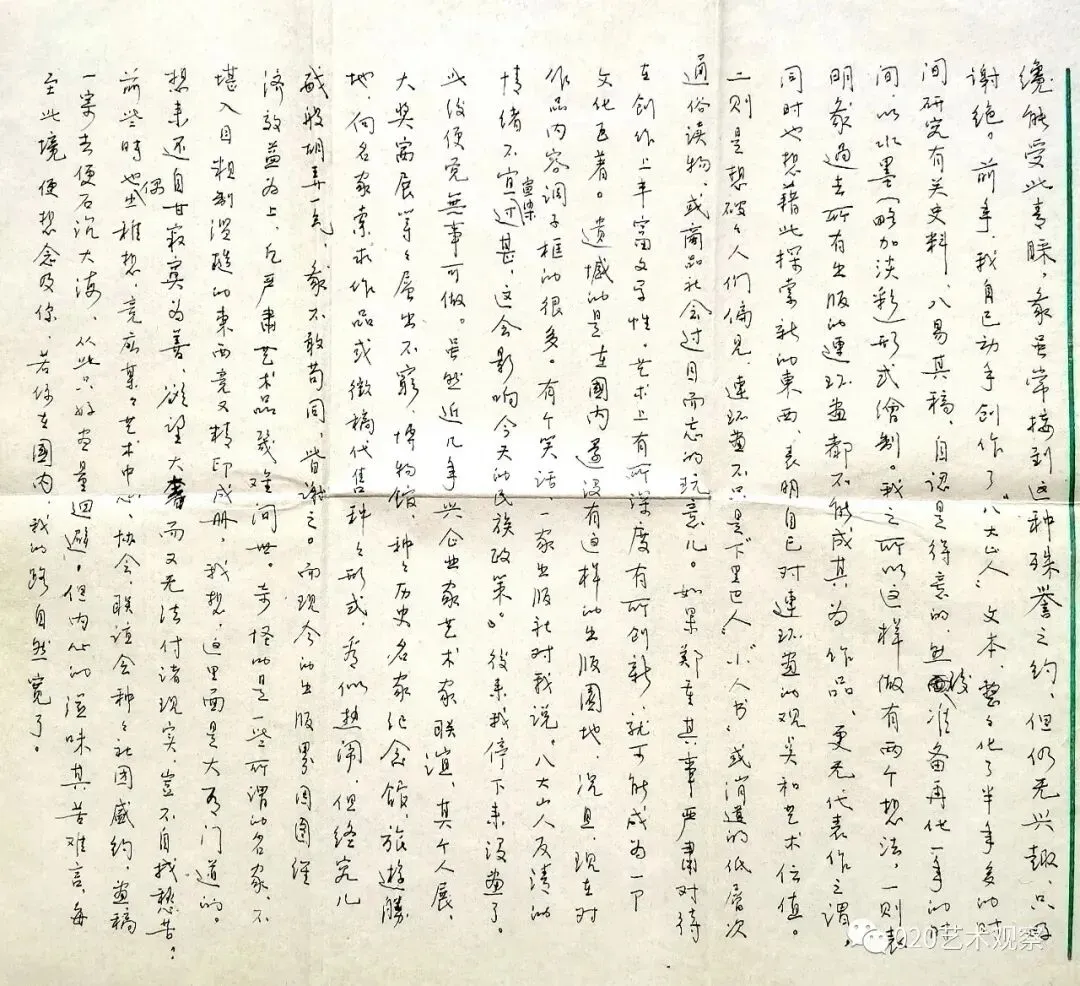 纔能受此青睐，象虽常接到这种殊誉之约，但仍无兴趣，只好
谢绝。前年，我自己动手创作了“八大山人”文本，整々化了半年多的时
间研究有关史料，八易其稿，自认是得意的，然后准备再化一年的时
间以水墨（略加淡彩）形式绘制。我之所以这样做有两个想法，一则表
明象过去所有出版的连环画都不能成其为作品，更无代表作之谓，
同时也想藉此探索新的东西，表明自己对连环画的观点和艺术位值。
二则是想破々人们偏见，连环画不只是“下里巴人”、“小人书”或消遣的低层次
通俗读物，或商品社会过目而忘的玩意儿。如果郑重其事严肃对待
在创作上丰富文学性，艺术上有所深度有所创新，就可能成为一部
文化巨著。遗憾的是在國内還没有这样的出版園地，况且现在对
作品内容调子框的很多。有个笑话，一家出版社对我说，八大山人反清的
情绪不宜过甚，这会影响今天的民族政策。后来我停下来没画了。
宣染
此後便觉無事可做。虽然近几年兴企业家艺术家联谊，其个人展、
大奖赛展等々层出不窮，博物馆，种々历史名家纪念館，旅遊勝
地，向名家索求作品或徵稿代售种々形式，看似热闹，但终究儿
戏般胡弄一气，象不敢苟同，皆谢之。而现今的出版界因圖经
济效益为上，乞严肃艺术品幾难问世。奇怪的是一些所谓的名家，不
堪入目粗制滥造的東西竟又精印成册，我想，这里面是大有门道的。
想来还自甘寂寞为善，欲望大奢而又无法付诸现实，岂不自找愁苦。
前些时也偶出稚想，竟应某々艺术中心、协会、联谊会种々社团盛约，画稿
一寄去便石沉大海，从此只好尽量迴避。但内心的滋味其苦难言，每
至此境便想念及你，若你在國内，我的路自然宽了。
020艺术观察